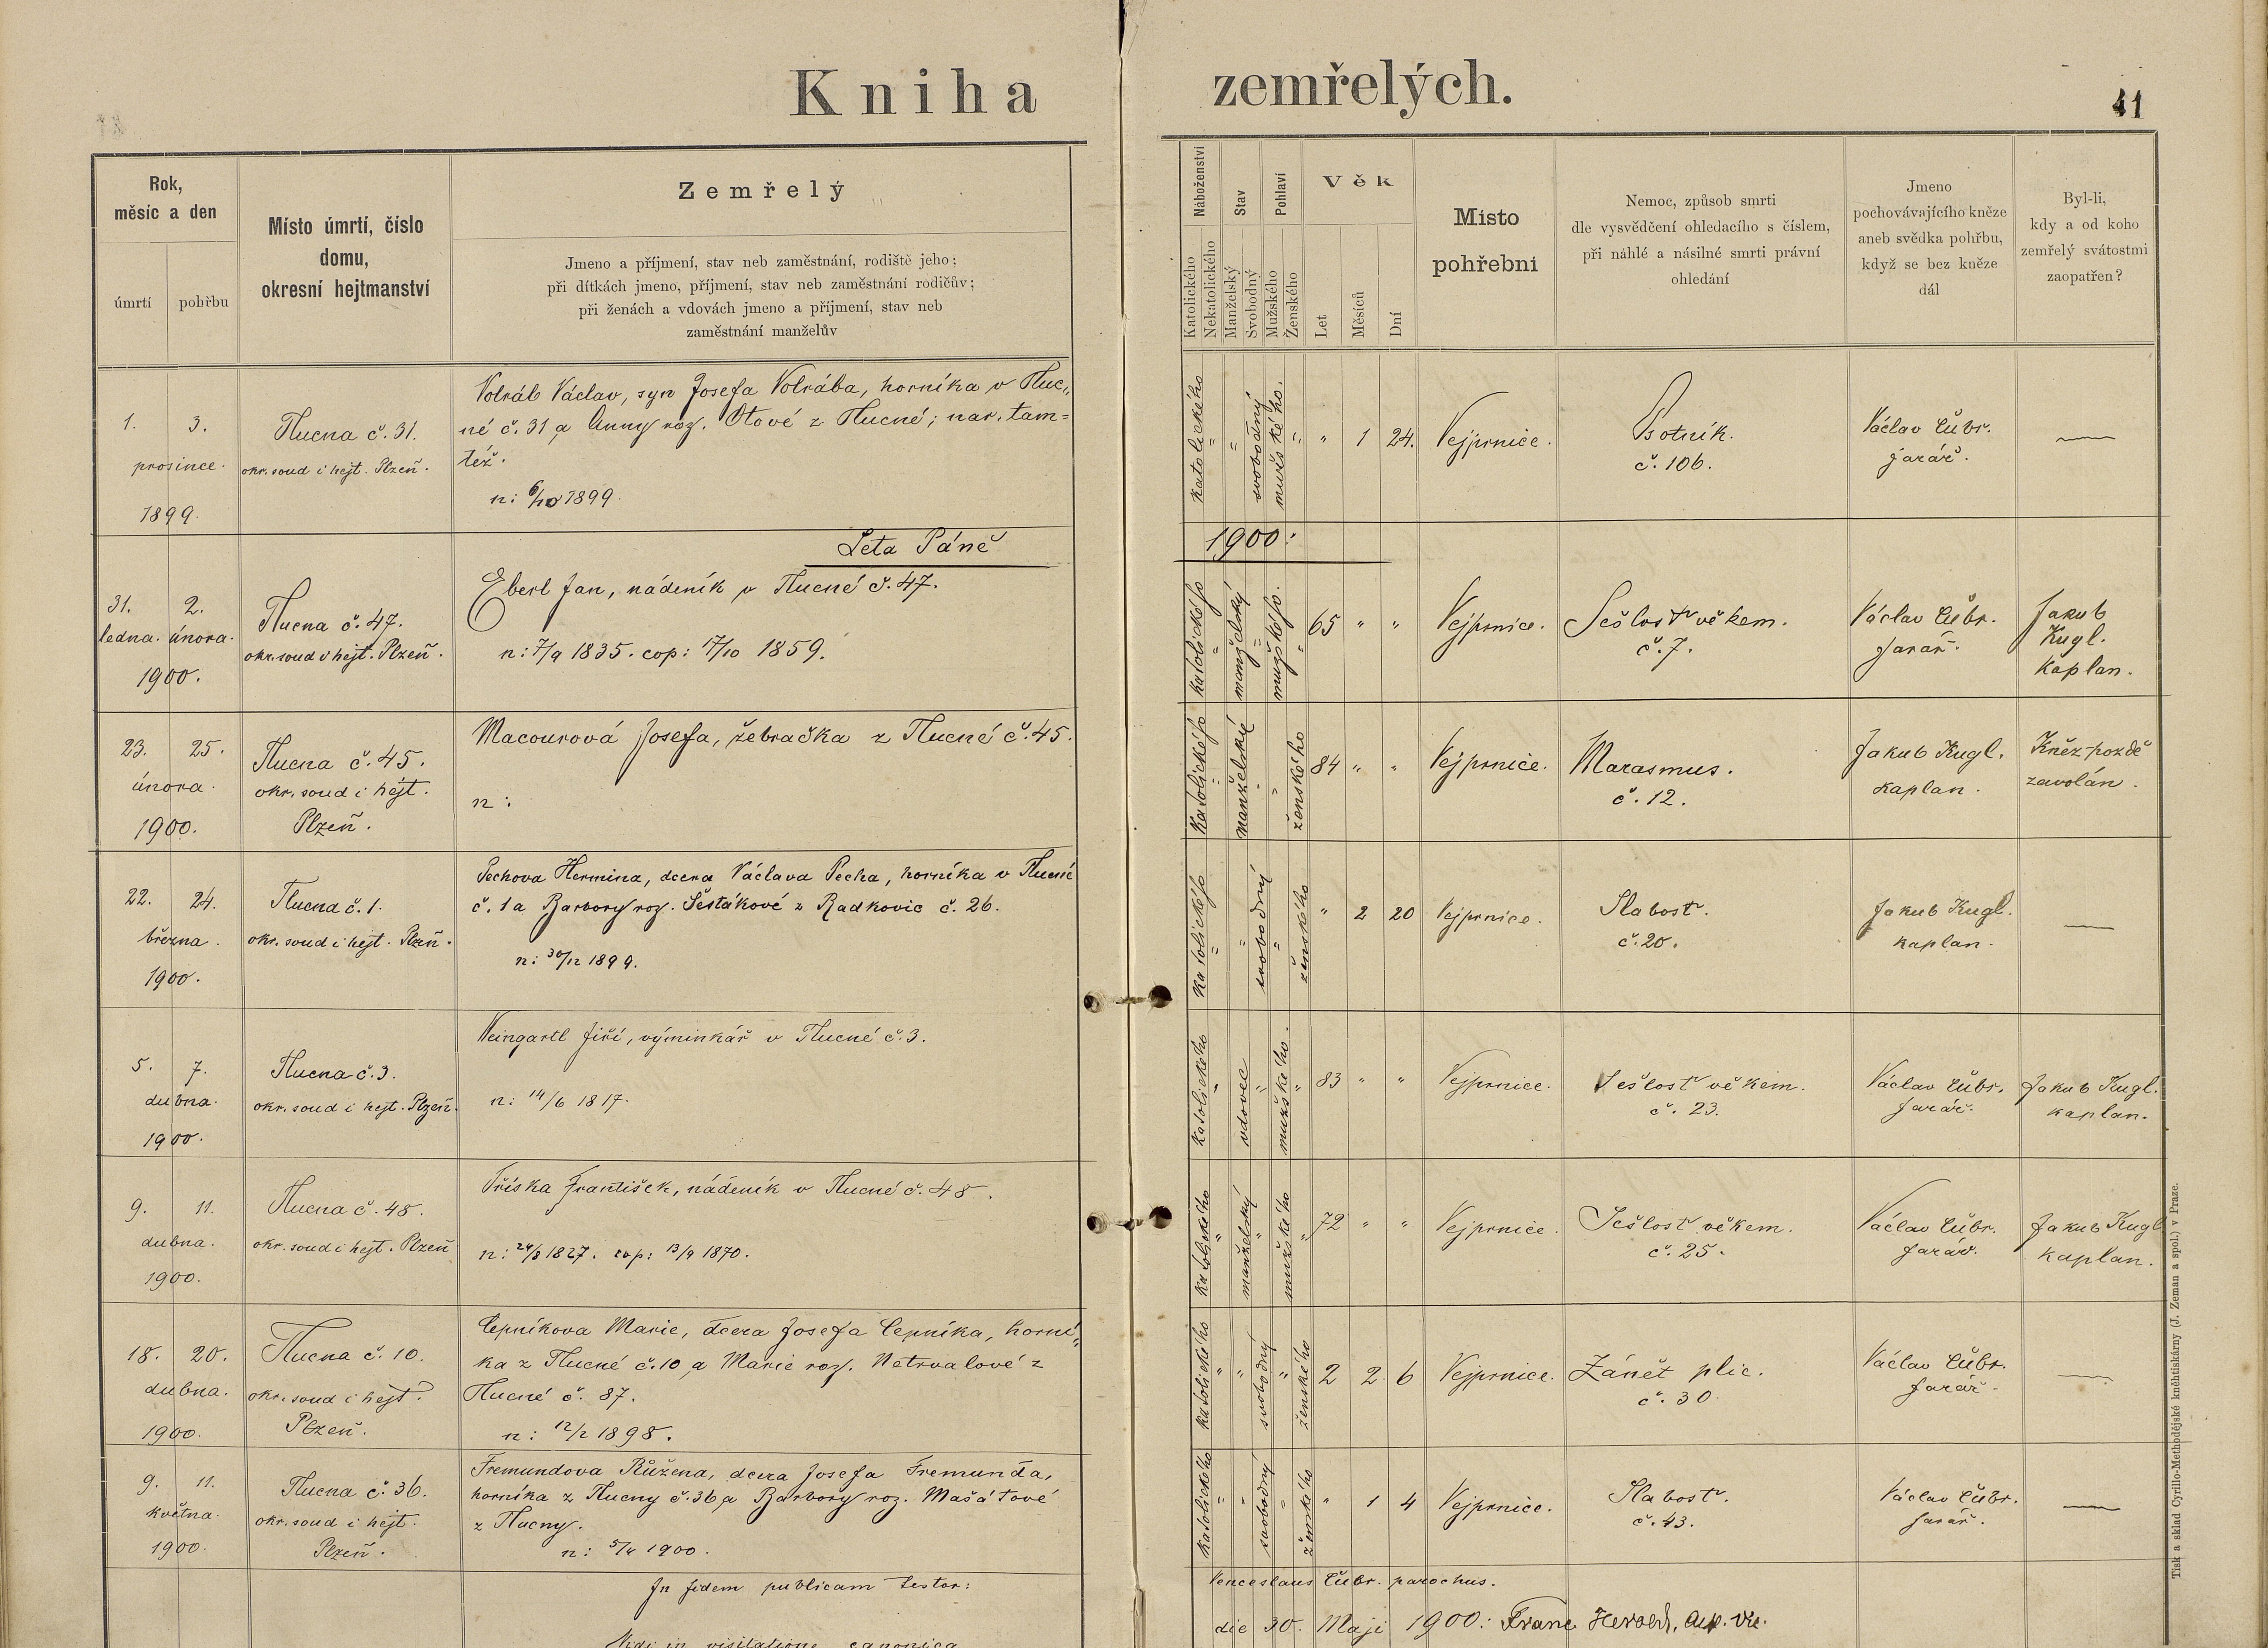 Kniha zemřelých.
41
Rok,
měsíc a den
úmrtí
pohřbu
Místo úmrtí, číslo
domu,
okresní hejtmanství
Zemřelý
Jmeno a příjmení, stav neb zaměstnání, rodiště jeho;
při dítkách jmeno, příjmení, stav neb zaměstnání rodičův;
při ženách a vdovách jmeno a příjmení, stav neb
zaměstnání manželův
Náboženství
Katolického
Nekatolického
Stav
Manželský
Svobodný
Pohlaví
Mužského
Ženského
Věk
Let
Měsíců
Dní
Místo
pohřební
Nemoc, způsob smrti
dle vysvědčení ohledacího s číslem,
při náhlé a násilné smrti právní
ohledání
Jmeno
pochovávajícího kněze
aneb svědka pohřbu,
když se bez kněze
dál
Byl-li,
kdy a od koho
zemřelý svátostmi
zaopatřen?
1. 3.
prosince.
1899.
Tlucna č. 31.
okr. soud i hejt. Plzeň.
Volráb Václav, syn Josefa Volrába, horníka v Tluc„
né č. 31 a Anny roz. Otové z Tlucné; nar. tam=
též.
n: 6/10 1899.
katolického
svobodný
mužského.
" 1 24.
Vejprnice.
Psotník.
č. 106.
Václav Čubr.
farář.
Leta Páně 1900:
31. 2.
ledna. února.
1900.
Tlucna č. 47.
okr. soud i hejt. Plzeň.
Eberl Jan, nádeník v Tlucné č. 47.
n: 7/9 1835. cop: 17/10 1859.
katolického
manželský
mužského.
65 " "
Vejprnice.
Sešlost věkem.
č. 7.
Václav Čubr.
farář.
Jakub
Kugl.
kaplan.
23. 25.
února.
1900.
Tlucna č. 45.
okr. soud i hejt.
Plzeň.
Macourová Josefa, žebračka z Tlucné č. 45.
n:
katolického
manželský
ženského
84 " "
Vejprnice.
Marasmus.
č. 12.
Jakub Kugl.
kaplan.
Kněz pozdě
zavolán.
22. 24.
března.
1900.
Tlucna č. 1.
okr. soud i hejt. Plzeň.
Pechova Hermina, dcera Václava Pecha, horníka v Tlucné
č. 1 a Barbory roz. Šestákové z Radkovic č. 26.
n: 30/12 1899.
katolického
svobodný
ženského
" 2 20
Vejprnice.
Slabost.
č. 20.
Jakub Kugl.
kaplan.
5. 7.
dubna.
1900.
Tlucna č. 3.
okr. soud i hejt. Plzeň.
Weingartl Jiří, výminkář v Tlucné č. 3.
n: 14/6 1817.
katolického
vdovec
mužského.
83 " "
Vejprnice.
Sešlost věkem.
č. 23.
Václav Čubr.
farář.
Jakub Kugl.
kaplan.
9. 11.
dubna.
1900.
Tlucna č. 48.
okr. soud i hejt. Plzeň
Tříska František, nádeník v Tlucné č. 48.
n: 24/8 1827. cop: 13/9 1870.
katolického
manželský
mužského
72 " "
Vejprnice.
Sešlost věkem.
č. 25.
Václav Čubr.
farář.
Jakub Kugl
kaplan.
18. 20.
dubna.
1900.
Tlucna č. 10.
okr. soud i hejt.
Plzeň.
Čepníkova Marie, dcera Josefa Čepníka, horní„
ka z Tlucné č. 10 a Marie roz. Netrvalové z
Tlucné č. 87.
n: 12/2 1898.
katolického
svobodný
ženského
2 2 6
Vejprnice.
Zánět plic.
č. 30.
Václav Čubr.
farář.
9. 11.
května.
1900.
Tlucna č. 36.
okr. soud i hejt.
Plzeň.
Fremundova Růžena, dcera Josefa Fremunda,
horníka z Tlucny č. 36 a Barbory roz. Mašátové
z Tlucny.
n: 5/4 1900.
katolického
svobodný
ženského
" 1 4
Vejprnice.
Slabost.
č. 43.
Václav Čubr.
farář.
In fidem publicam testor: Venceslaus Čubr. parochus.
Vidi in visitatione canonica die 30. Maji 1900: Franc Herold,
Tisk a sklad Cyrillo-Methodějské knihtiskárny (J. Zeman a spol.) v Praze.